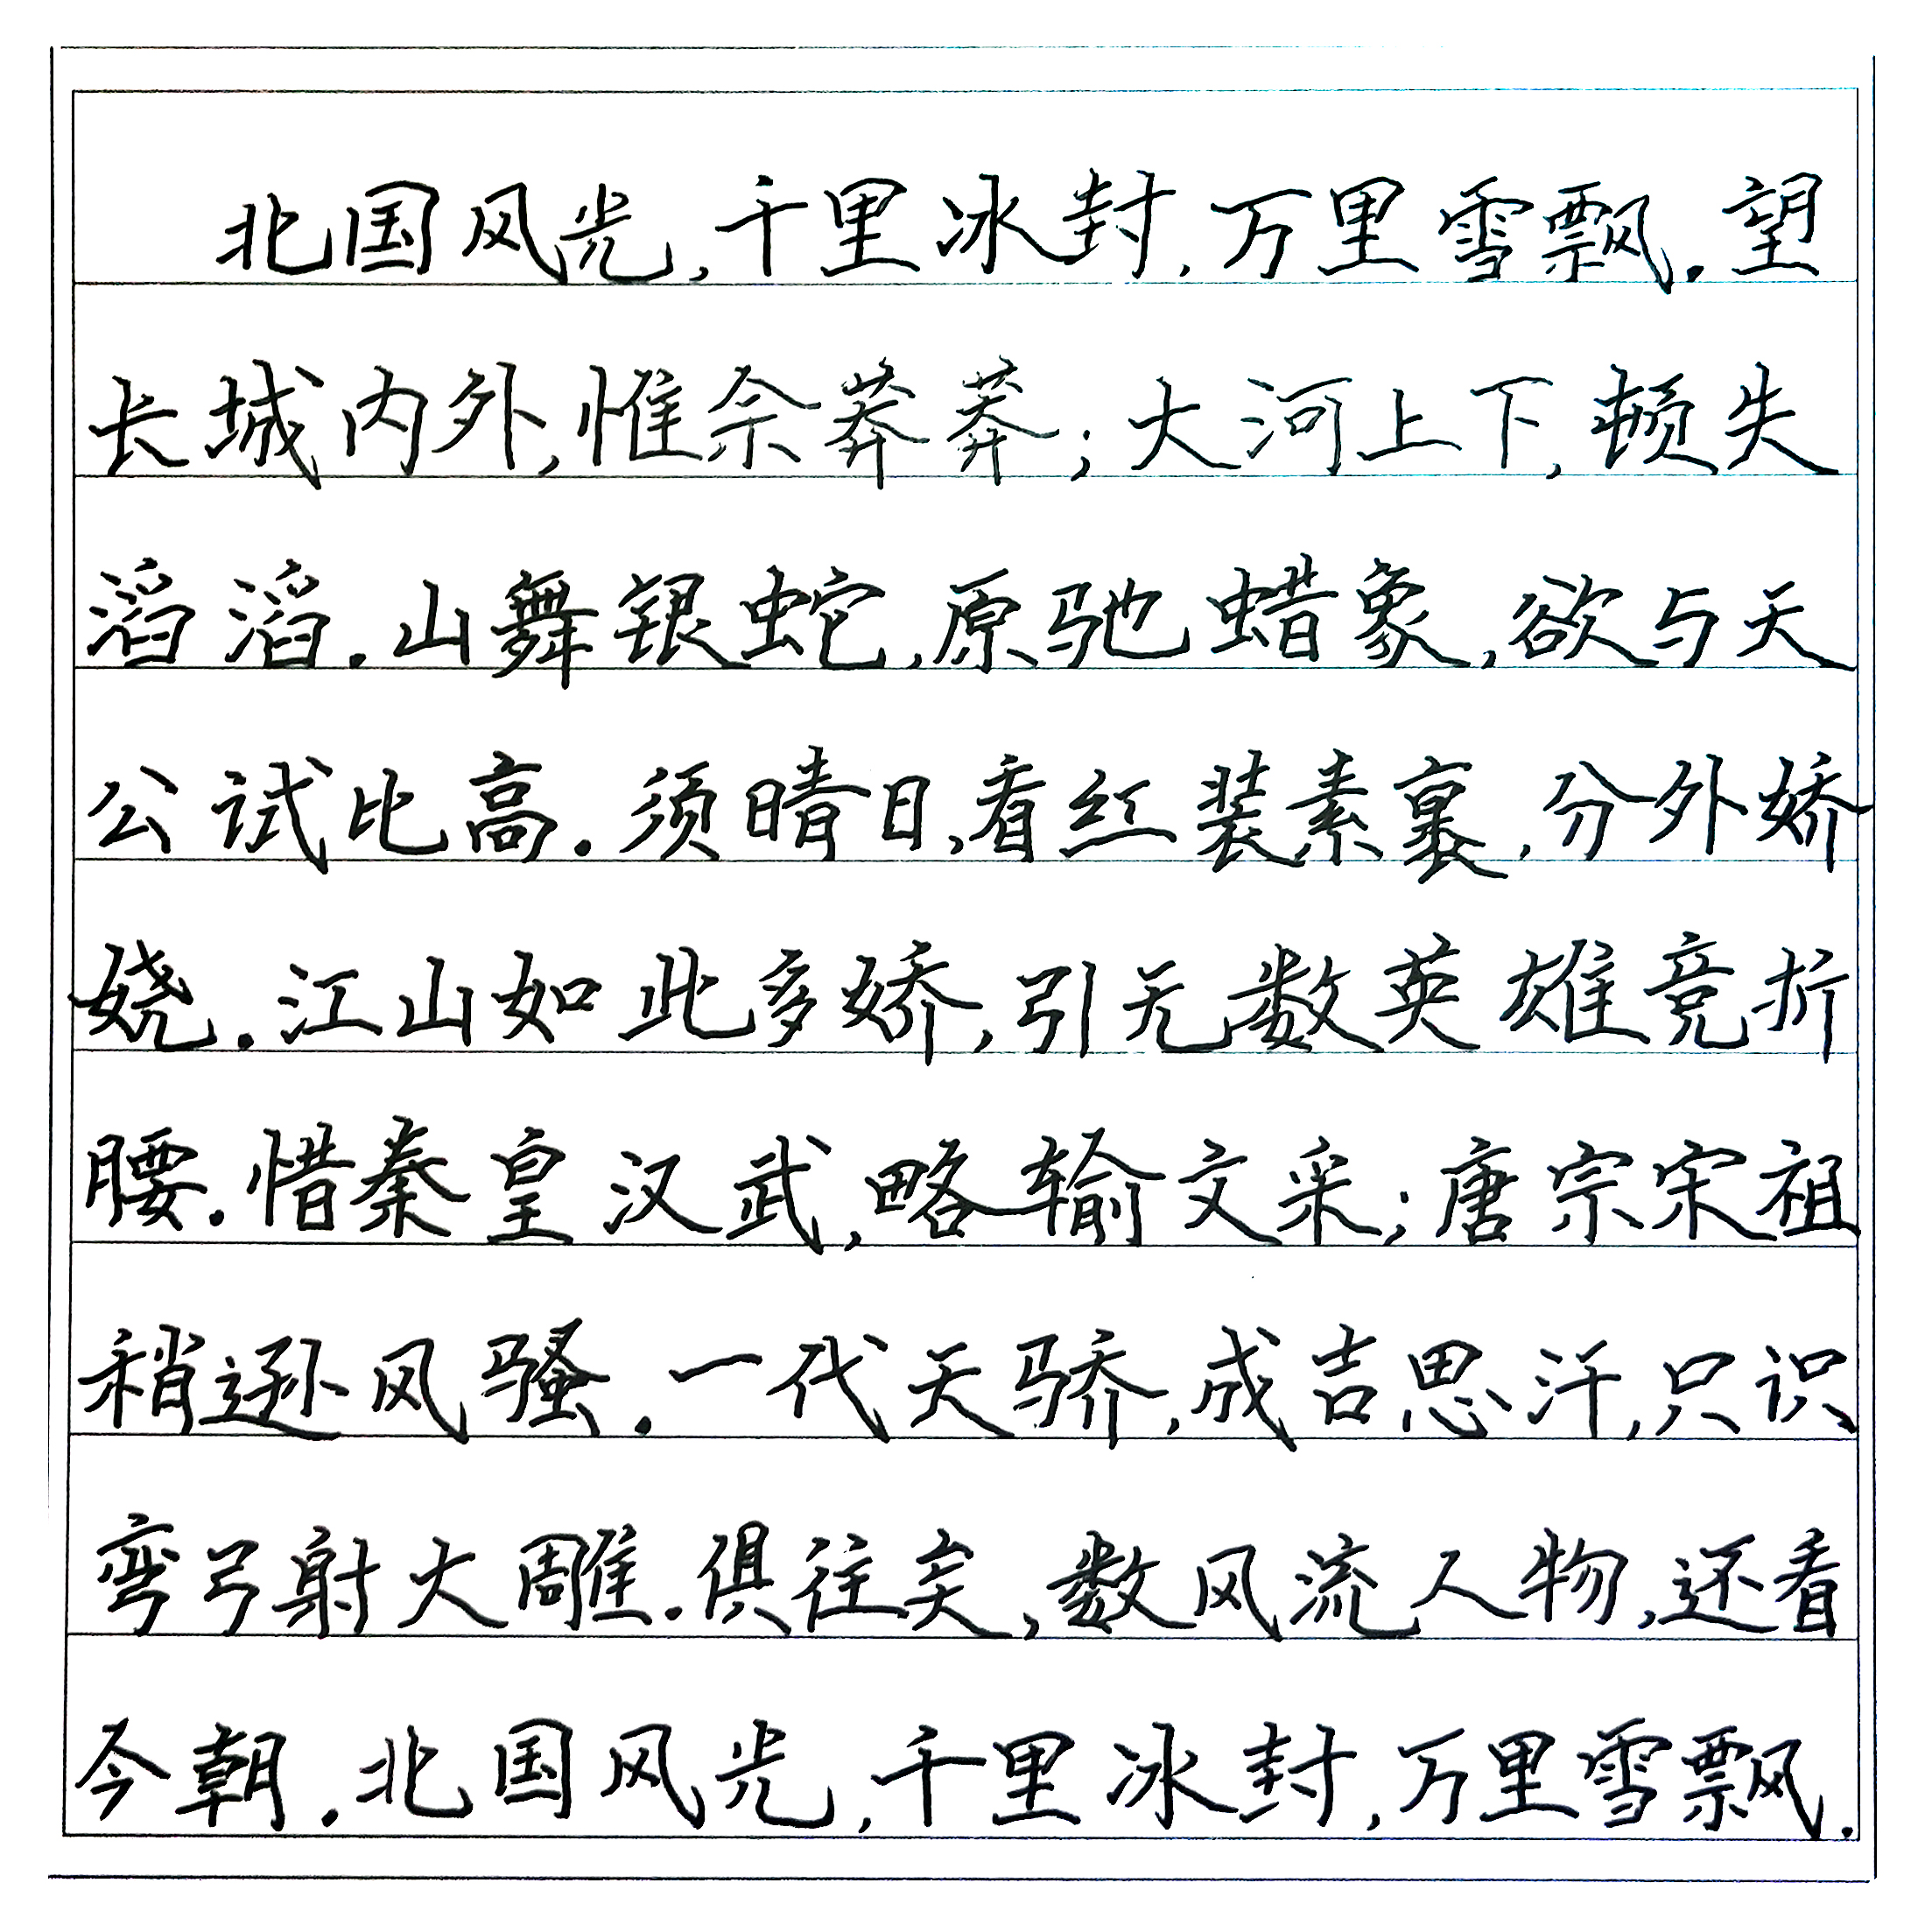 北国风光,千里冰封,万里雪飘.望
长城内外,惟余莽莽;大河上下,顿失
滔滔.山舞银蛇,原驰蜡象,欲与天
公试比高.须晴日,看红装素裹,分外娇
娆.江山如此多娇,引无数英雄竞折
腰.惜秦皇汉武,略输文采;唐宗宋祖
稍逊风骚.一代天骄,成吉思汗,只识
弯弓射大雕.俱往矣,数风流人物,还看
今朝.北国风光,千里冰封,万里雪飘.